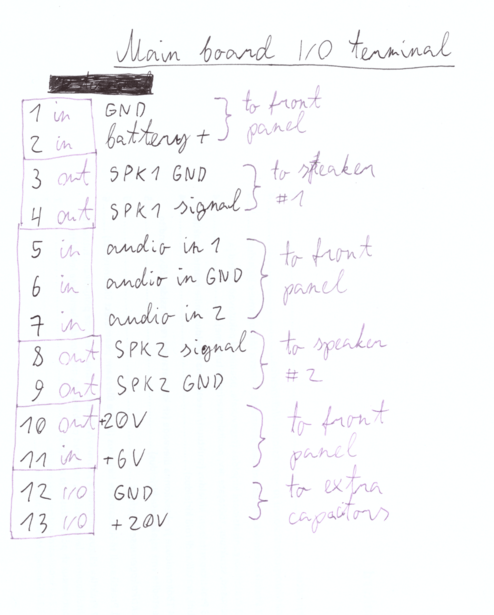 Main board I/O terminal
1 in GND
2 in battery +
to front
panel
3 out SPK1 GND
4 out SPK1 signal
to speaker
#1
5 in audio in 1
6 in audio in GND
7 in audio in 2
to front
panel
8 out SPK2 signal
9 out SPK2 GND
to speaker
#2
10 out +20V
11 in +6V
to front
panel
12 I/O GND
13 I/O +20V
to extra
capactors